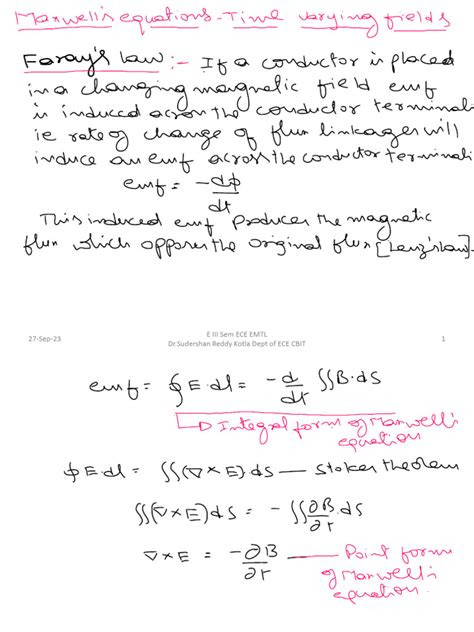 Maxwell's equations - Time varying fields
Faray's law :- If a conductor is placed
in a changing magnetic field emf
is induced across the conductor terminals
ie rate of change of flux linkages will
induce an emf across the conductor terminals
emf = -dϕ/dt
This induced emf produces the magnetic
flux which opposes the original flux [Lenz's law].
27-Sep-23
E III Sem ECE EMTL
Dr.Sudershan Reddy Kotla Dept of ECE CBIT
1
emf = ∮E·dl = -d/dt ∬B·ds
Integral form of Maxwell's
equation
∮E·dl = ∬(∇×E)·ds — Stokes theorem
∬(∇×E)ds = -∬∂B/∂t·ds
∇×E = -∂B/∂t — Point form
of Maxwell's
equation.